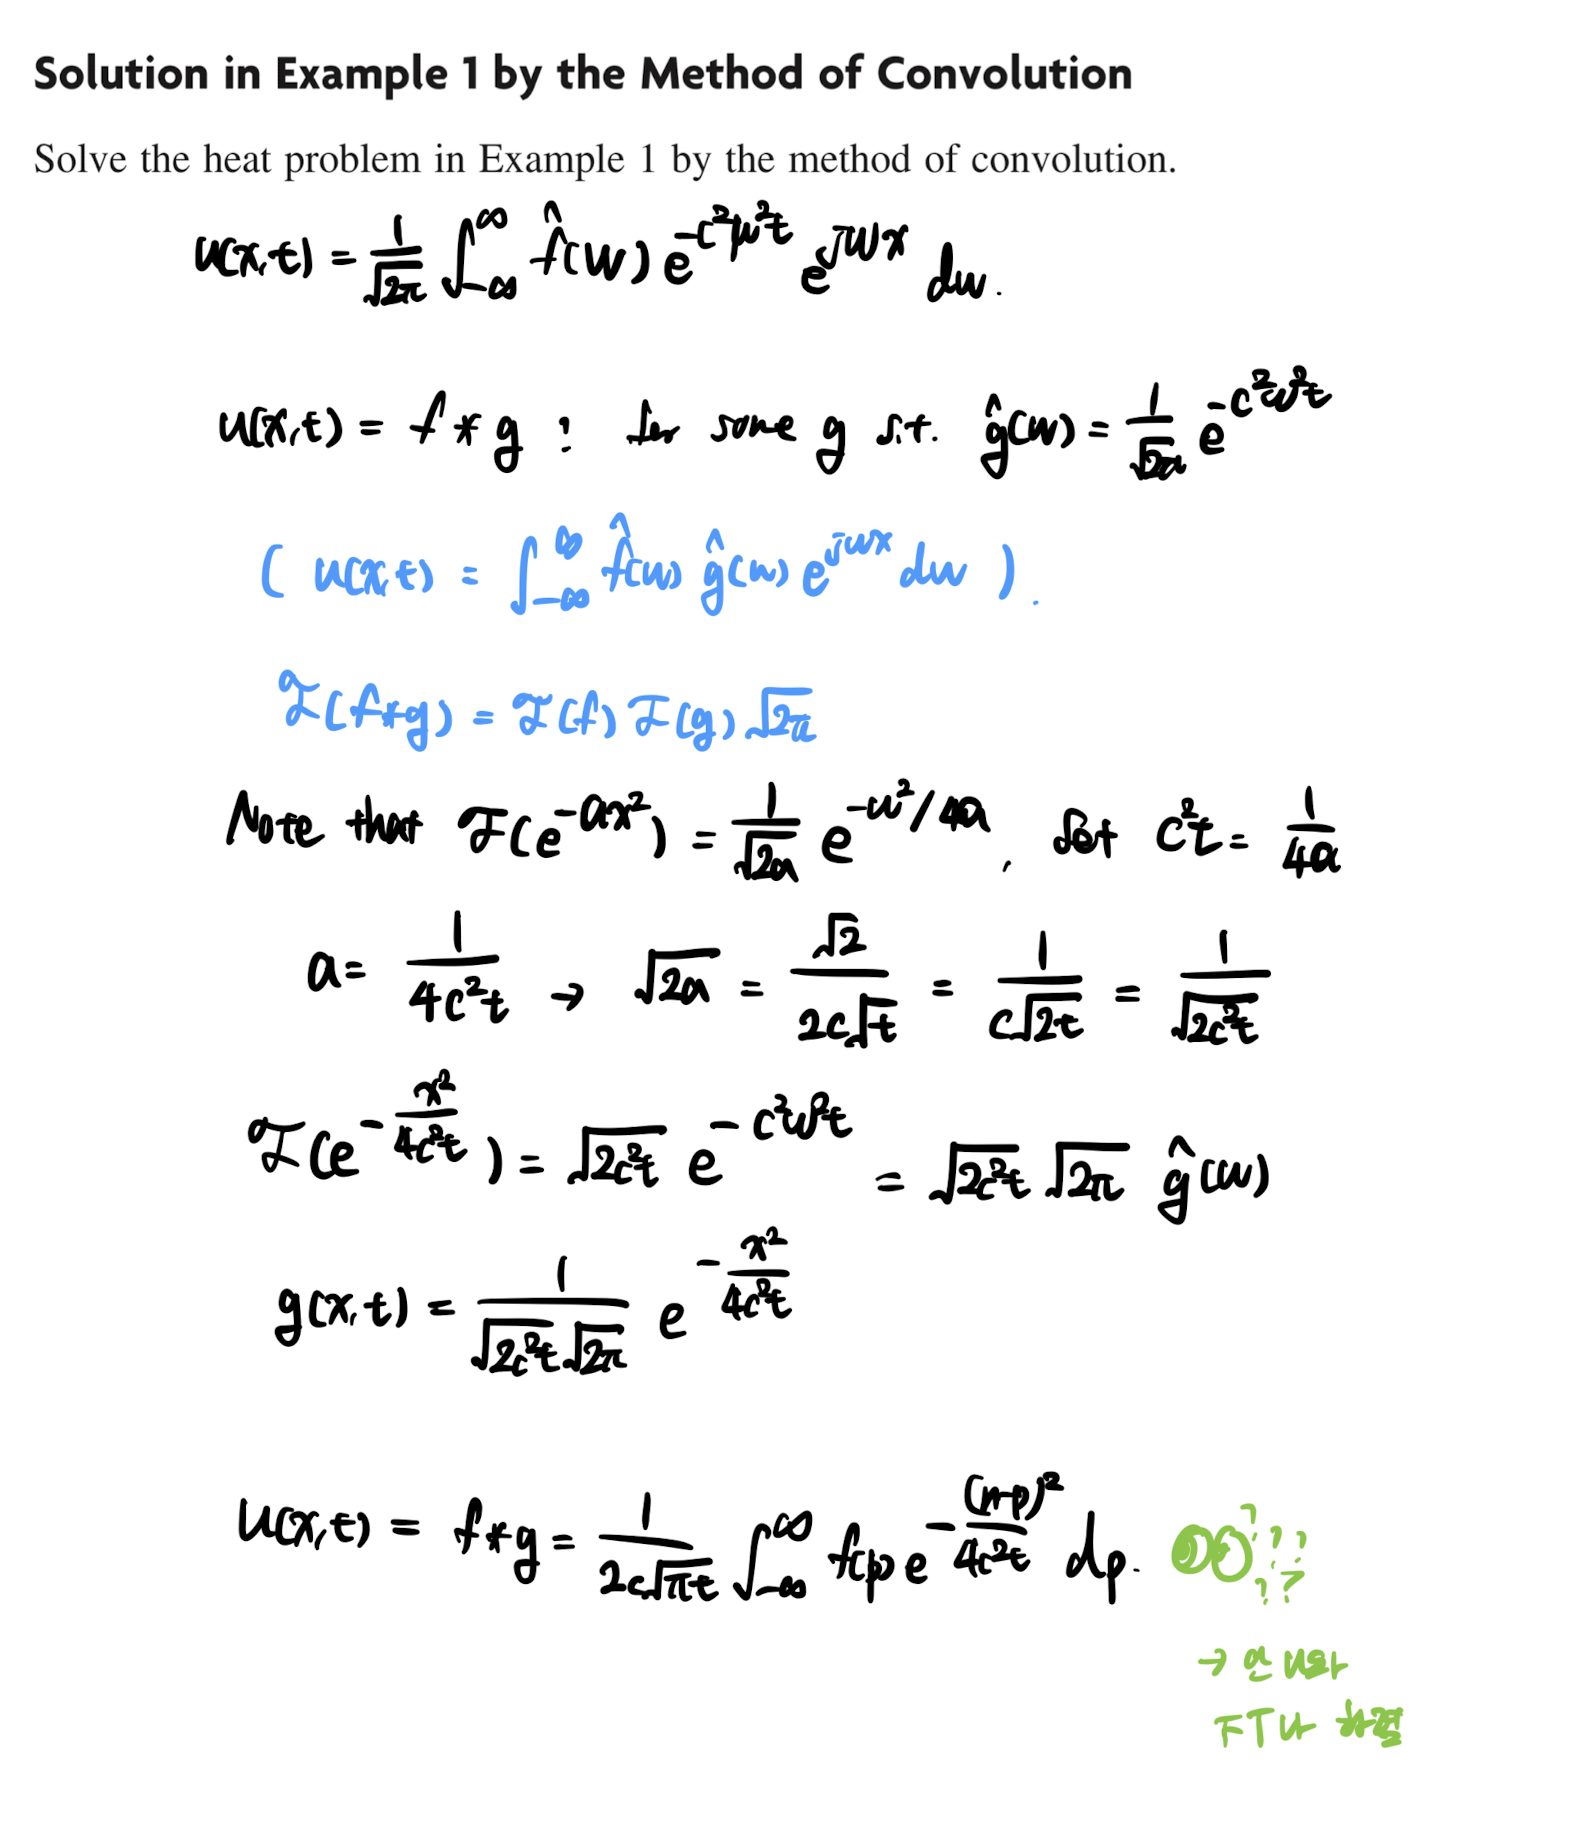 Solution in Example 1 by the Method of Convolution
Solve the heat problem in Example 1 by the method of convolution.
u(x,t) = 1/√2π ∫_{-∞}^{∞} f̂(w) e^{-c²w²t} e^{jwx} dw.
u(x,t) = f * g : for some g s.t. ĝ(w) = 1/√2π e^{-c²w²t}
( u(x,t) = ∫_{-∞}^{∞} f̂(w) ĝ(w) e^{jwx} dw ).
ℱ(f*g) = ℱ(f) ℱ(g) √2π
Note that ℱ(e^{-ax²}) = 1/√2a e^{-w²/4a}, Set c²t = 1/4a
a = 1/4c²t → √2a = √2/2c√t = 1/c√2t = 1/√2c²t
ℱ(e^{-x²/4c²t}) = √2c²t e^{-c²w²t} = √2c²t √2π ĝ(w)
g(x,t) = 1/√2c²t√2π e^{-x²/4c²t}
u(x,t) = f*g = 1/2c√πt ∫_{-∞}^{∞} f(p) e^{-(x-p)²/4c²t} dp. ?????
→ 안 나와
FT나 하렴